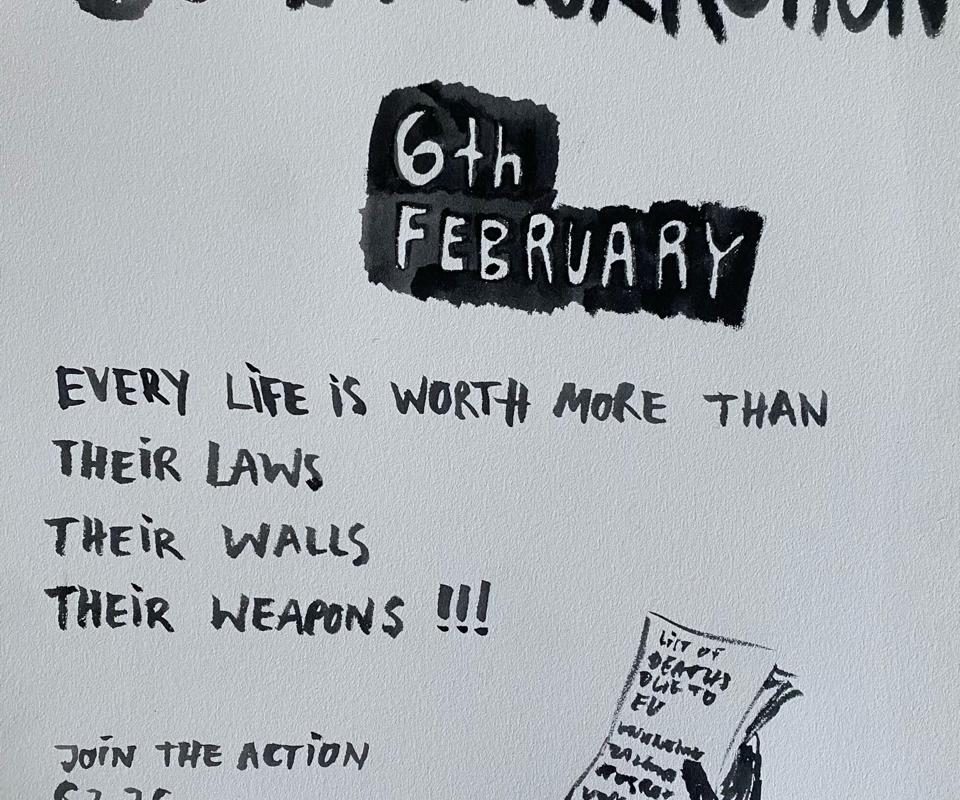 6th
FEBRUARY
EVERY LiFE iS WORTH MORE THAN
THEiR LAWS
THEiR WALLS
THEiR WEAPONS !!!
LiST OF
DEATHS
DUE TO
EU
JOiN THE ACTiON